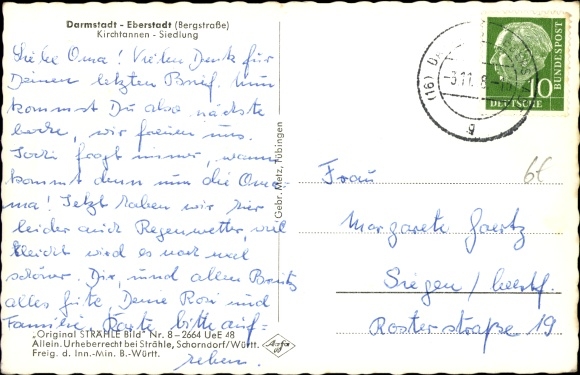 Darmstadt - Eberstadt (Bergstraße)
Kirchtannen - Siedlung
Liebe Oma! Vielen Dank für
Deinen letzten Brief. Nun
kommst Du also nächste
Woche, wir freuen uns.
fragt immer, wann
kommt denn nun die Oma
ma! Jetzt haben wir hier
leider auch Regenwetter, viel
leicht wird es noch mal
schöner. Dir, und allen
alles Gute, Deine Rosi und
Familie. Karte bitte auf=
heben.
"Original STRÄHLE Bild" Nr. 8-2664 UeE 48
Allein. Urheberrecht bei Strähle, Schorndorf/Württ.
Freig. d. Inn.-Min. B.-Württ.
Agfa
Gebr. Metz, Tübingen
(16)
-3.11.
g
10
DEUTSCHE
BUNDESPOST
6€
Frau
Margarete Goertz
Siegen / Westf.
Rosterstraße 19